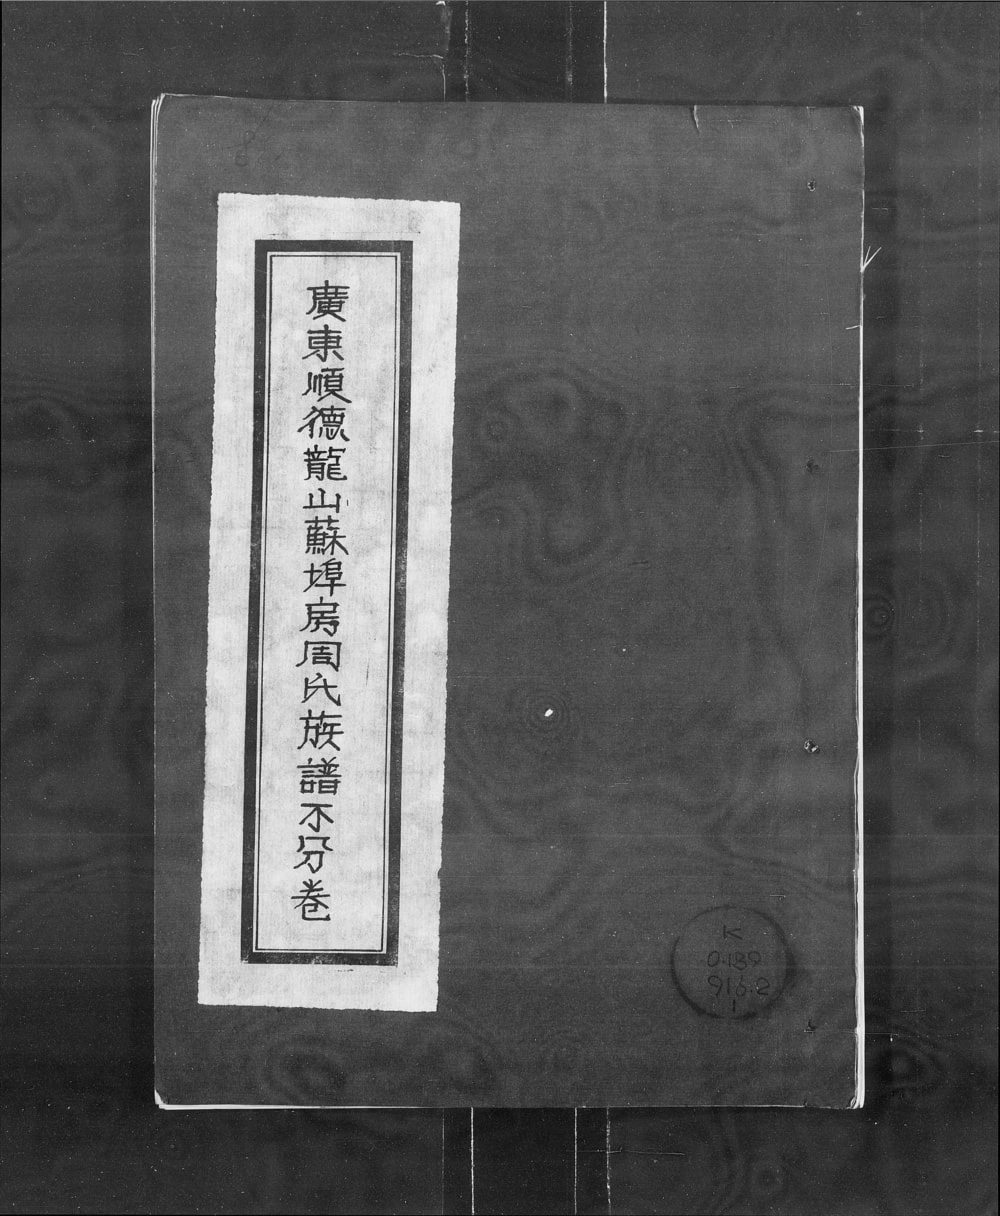 廣東順德龍山蘇埠房周氏族譜不分卷
K
0·139
916·2
1